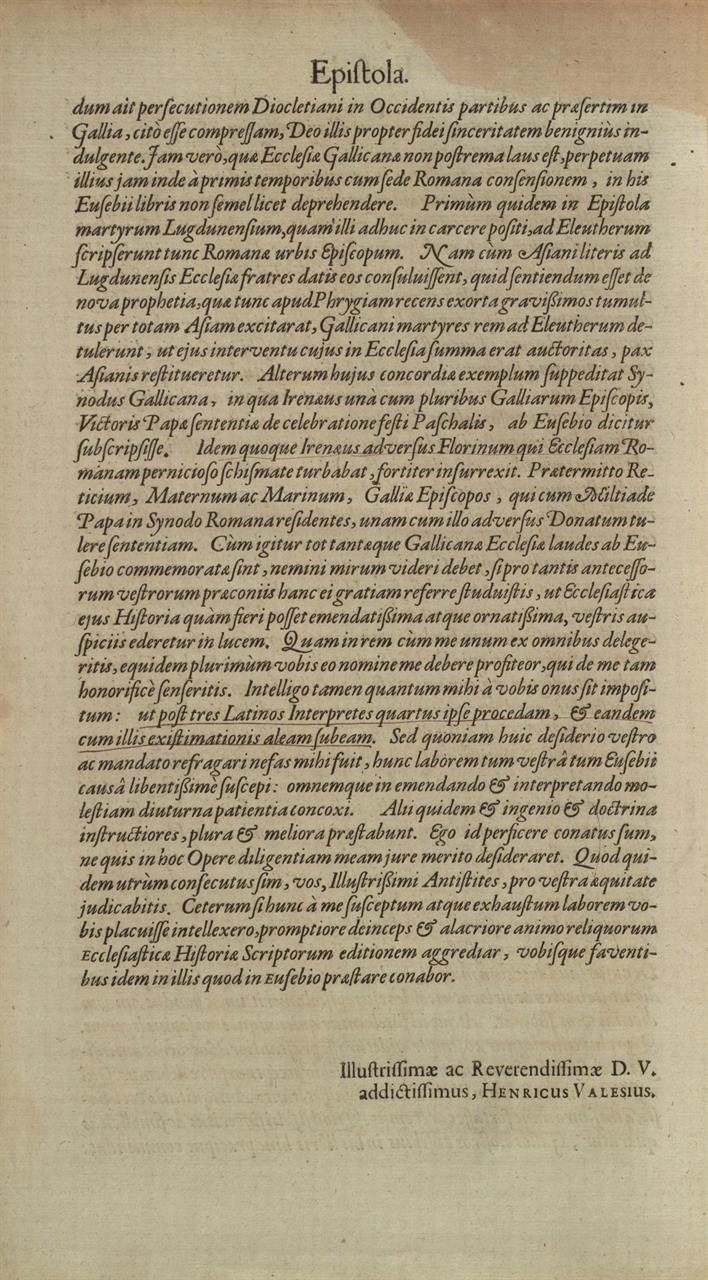 Epiſtola.
dum ait perſecutionem Diocletiani in Occidentis partibus ac præſertim in
Gallia, citò eſſe compreſſam, Deo illis propter fidei ſinceritatem benigniùs in-
dulgente. Jam verò, quæ Eccleſiæ Gallicanæ non poſtrema laus eſt, perpetuam
illius jam inde à primis temporibus cum ſede Romana conſenſionem, in his
Euſebii libris non ſemel licet deprehendere. Primùm quidem in Epiſtola
martyrum Lugdunenſium, quam illi adhuc in carcere poſiti, ad Eleutherum
ſcripſerunt tunc Romanæ urbis Epiſcopum. Nam cùm Aſiani literis ad
Lugdunenſis Eccleſiæ fratres datis eos conſuluiſſent, quid ſentiendum eſſet de
nova prophetia, quæ tunc apud Phrygiam recens exorta graviſſimos tumul-
tus per totam Aſiam excitarat, Gallicani martyres rem ad Eleutherum de-
tulerunt, ut ejus interventu cujus in Eccleſia ſumma erat auctoritas, pax
Aſianis reſtitueretur. Alterum hujus concordiæ exemplum ſuppeditat Sy-
nodus Gallicana, in qua Irenæus unà cum pluribus Galliarum Epiſcopis,
Victoris Papæ ſententiæ de celebratione feſti Paſchalis, ab Euſebio dicitur
ſubſcripſiſſe. Idem quoque Irenæus adverſus Florinum qui Eccleſiam Ro-
manam pernicioſo ſchiſmate turbabat, fortiter inſurrexit. Prætermitto Re-
ticium, Maternum ac Marinum, Galliæ Epiſcopos, qui cum Miltiade
Papa in Synodo Romana reſidentes, unam cum illo adverſus Donatum tu-
lere ſententiam. Cùm igitur tot tantæque Gallicanæ Eccleſiæ laudes ab Eu-
ſebio commemoratæ ſint, nemini mirum videri debet, ſi pro tantis anteceſſo-
rum veſtrorum præconiis hanc ei gratiam referre ſtuduiſtis, ut Eccleſiaſtica
ejus Hiſtoria quàm fieri poſſet emendatiſſima atque ornatiſſima, veſtris au-
ſpiciis ederetur in lucem. Quam in rem cùm me unum ex omnibus delege-
ritis, equidem plurimùm vobis eo nomine me debere profiteor, qui de me tam
honorificè ſenſeritis. Intelligo tamen quantum mihi à vobis onus ſit impoſi-
tum: ut poſt tres Latinos Interpretes quartus ipſe procedam, & eandem
cum illis exiſtimationis aleam ſubeam. Sed quoniam huic deſiderio veſtro
ac mandato refragari nefas mihi fuit, hunc laborem tum veſtrâ tum Euſebii
cauſâ libentiſſimè ſuſcepi: omnemque in emendando & interpretando mo-
leſtiam diuturna patientia concoxi. Alii quidem & ingenio & doctrina
inſtructiores, plura & meliora præſtabunt. Ego id perficere conatus ſum,
ne quis in hoc Opere diligentiam meam jure merito deſideraret. Quod qui-
dem utrùm conſecutus ſim, vos, Illuſtriſſimi Antiſtites, pro veſtra æquitate
judicabitis. Ceterum ſi hunc à me ſuſceptum atque exhauſtum laborem vo-
bis placuiſſe intellexero, promptiore deinceps & alacriore animo reliquorum
Eccleſiaſticæ Hiſtoriæ Scriptorum editionem aggrediar, vobiſque faventi-
bus idem in illis quod in Euſebio præſtare conabor.
Illuſtriſſimæ ac Reverendiſſimæ D. V.
addictiſſimus, HENRICUS VALESIUS.